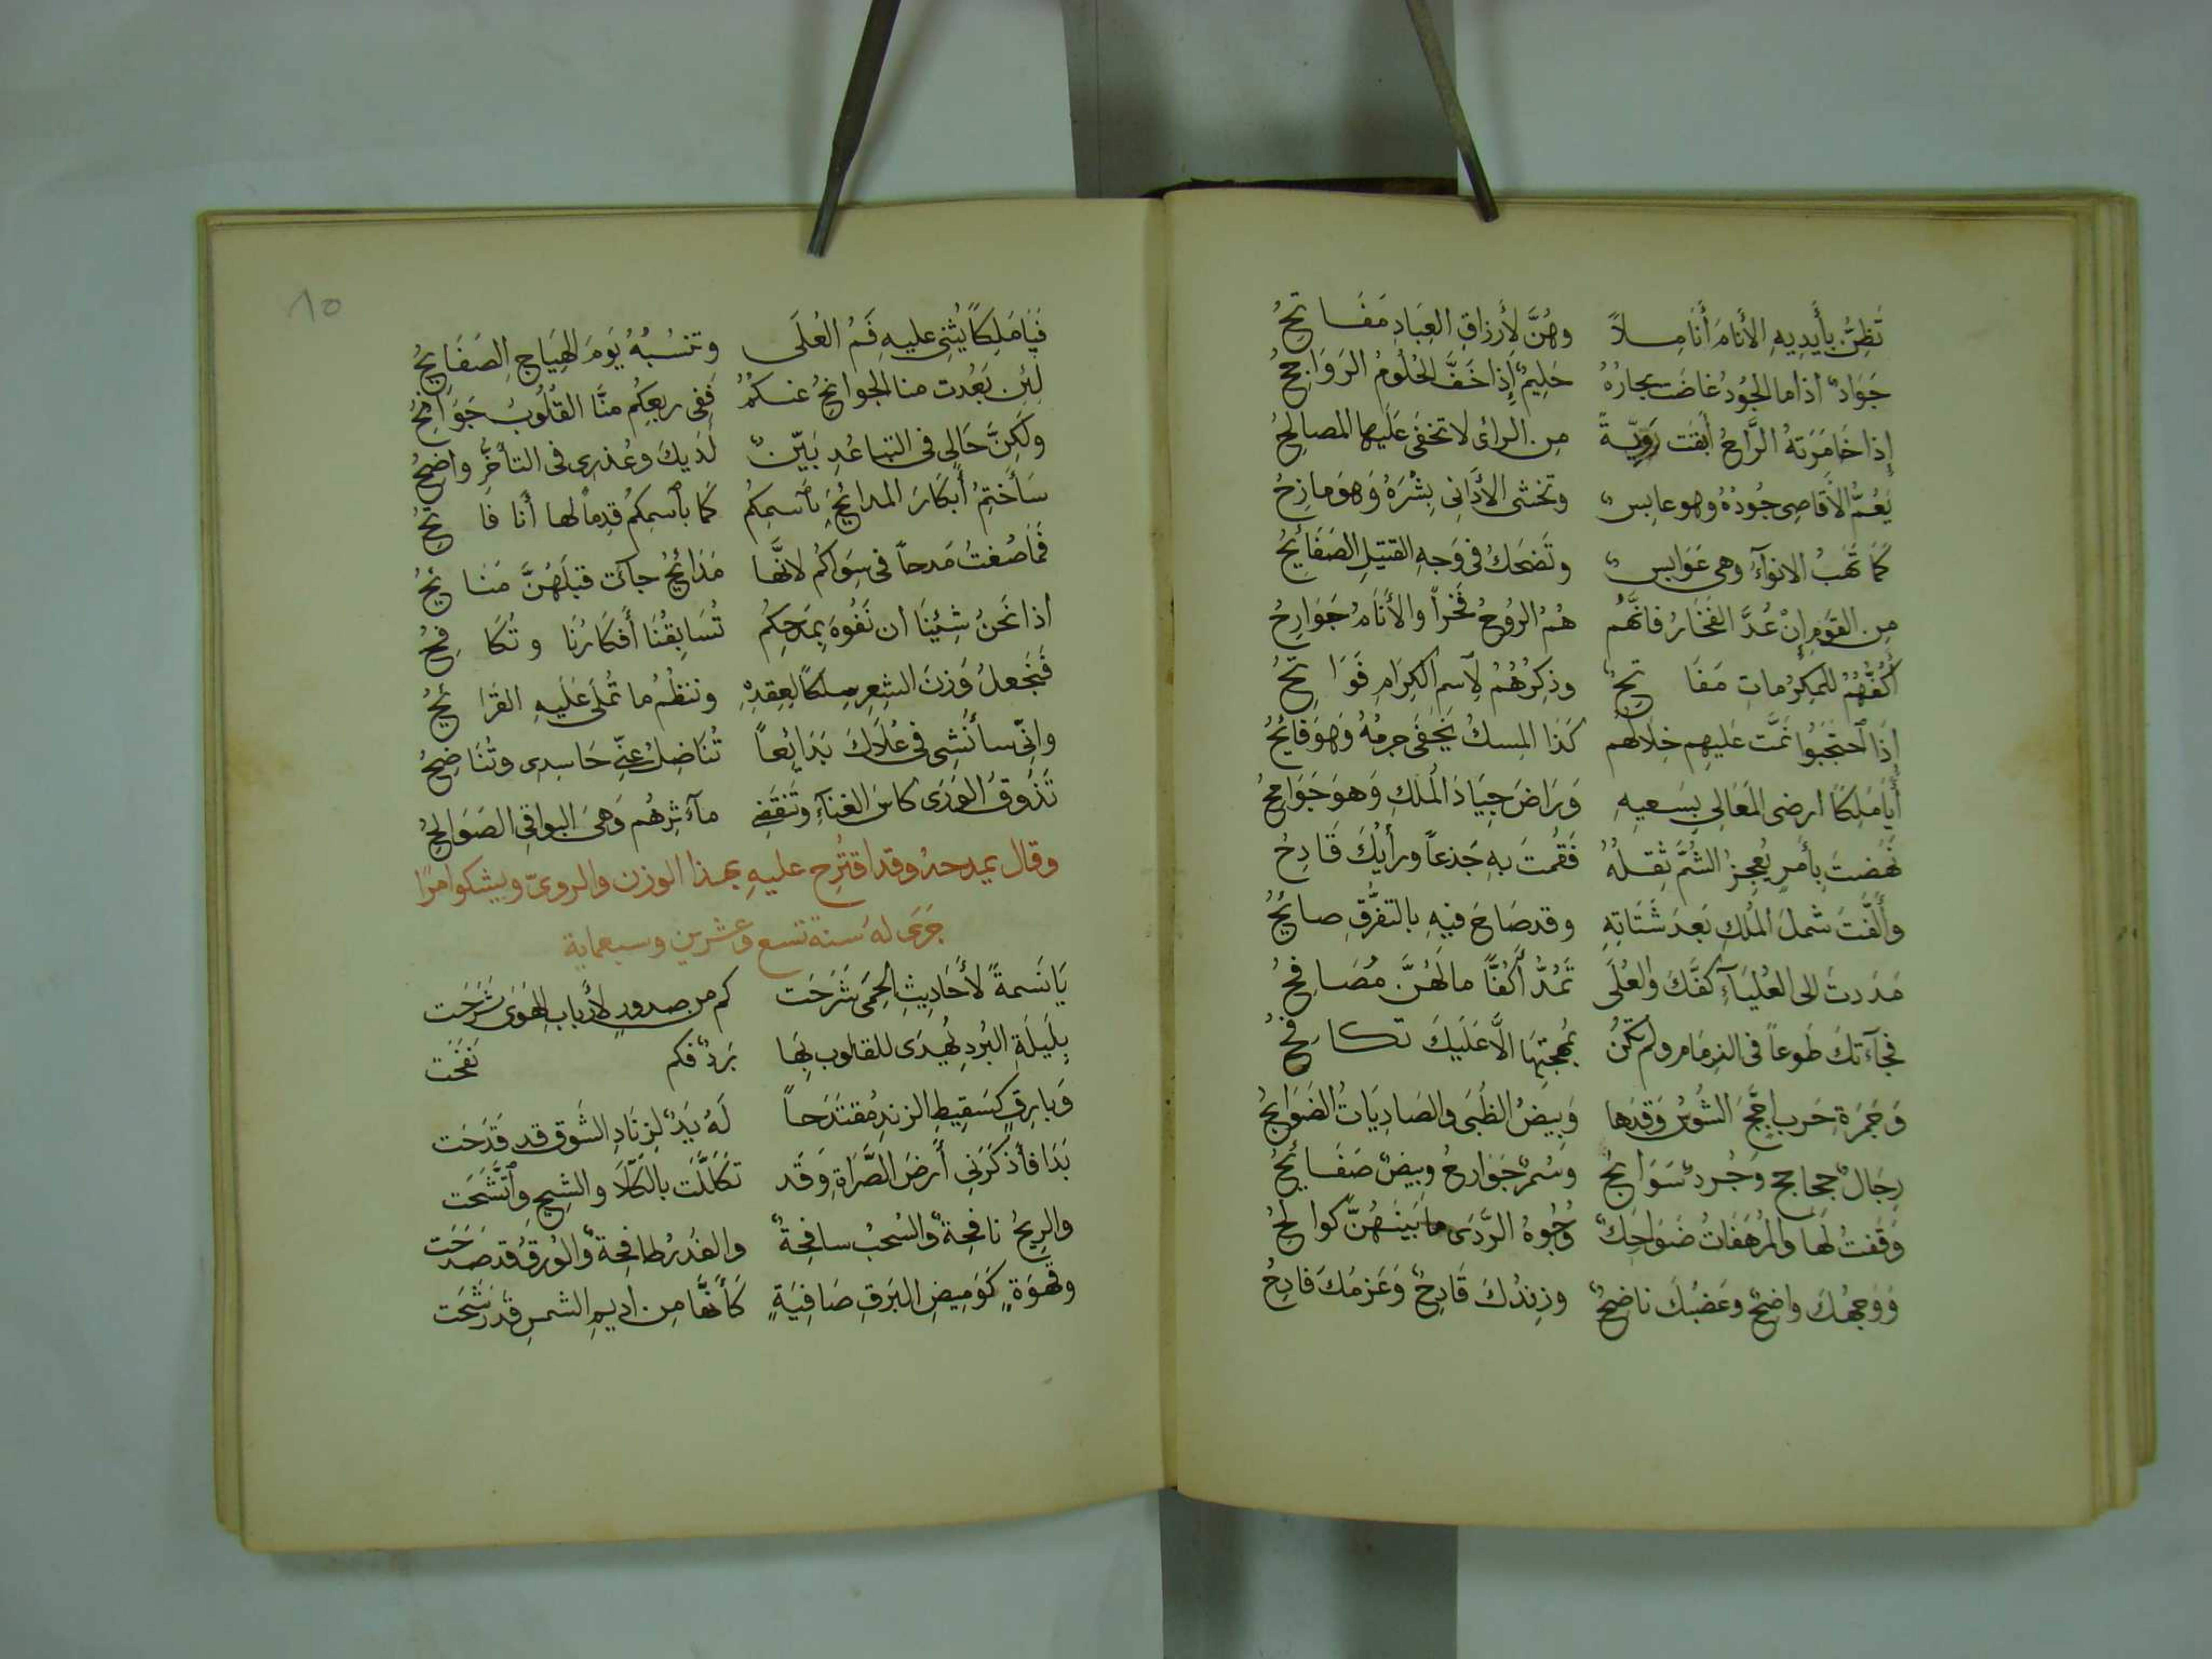 تَظُنُّ بِأَيدِيهِ الأَنامَ أَنَامِلاً وهُنَّ لأَرزاقِ العِبَادِ مَفَاتِحُ
جَوَادٌ اذا ما الجُودُ غاضَت بِحارُهُ حَلِيمٌ إِذا خَفَّ الحُلُومُ الرَوَاجِحُ
إِذا خَامَرَتهُ الرَّاحُ أَبقَت رَوِيَّةً مِن الرائ لا تخفى عَلَيها المصالِحُ
يَعُمُّ الأَقَاصِى جُودُهُ وهو عابِسٌ وتخشى الأَدَانِى بِشْرَهُ وَهوَ مازِحُ
كَمَا تَهَبُ الانوآءُ وهى عَوَابِسٌ وتَضحَكُ فى وَجهِ القتيلِ الصَفَائِحُ
مِن القَومِ إِنْ عُدَّ الفَخَارُ فانَّهُم هُمُ الرُوحُ فَخراً والأَنَامُ جَوَارِحُ
أَكُفُّهُمُ للمكرُماتِ مَفَاتِحٌ وذِكرُهُمُ لِاسمِ الكِرَامِ فَوَاتِحُ
إِذَا احتَجَبُوا نَمَّت عَليهِم خِلالُهُم كَذَا المِسكُ يَخفَى جِرمُهُ وَهوَ فَائِحُ
أَيَا مَلِكًا ارضى المَعَالِي بِسَعيِهِ وَرَاضَ جِيَادَ المُلكِ وَهوَ جَوَامِحُ
نَهَضتَ بِأَمرٍ يُعجِزُ الشُمَّ ثِقلُهُ فَقُمتَ بهِ جَذعاً ورأيُكَ قَادِحُ
وأَلَّفتَ شَملَ المُلكِ بَعدَ شَتَاتِهِ وقد صَاحَ فيهِ بالتفَرُّقِ صائِحُ
مَدَدتَ الى العُليَآءِ كفَّكَ والعُلَى تَمُدُّ أَكُفًّا ما لَهُنَّ مُصَافِحُ
فجآءَتكَ طَوعاً فى الزِمَامِ ولم تكُن بمُهجَتِهَا الَّا عَلَيكَ تكافِحُ
وَجَمرَةِ حَربٍ اجَّجَ الشُوسُ وَقدَها وَبِيضُ الظُبَى والصَادِيَاتُ الضَوَابِحُ
رِجَالٌ جحاجح وجُردٌ سَوَابِحُ وسُمرٌ جَوَارِحُ وبِيضٌ صَفَائِحُ
وَقَفتُ لَها والمُرهَفَاتُ ضَوَاحِكٌ وُجُوهُ الرَّدَى ما بَينَهُنَّ كوالِحُ
وَوَجهُكَ واضِحٌ وعَضبُكَ ناضِحٌ وزِندُكَ قَادِحٌ وَعَزمُكَ فادِحُ
١٥
فَيَا مَلِكاً يُثنِى عليهِ فَمُ العُلَى وتنسُبُهُ يَومَ الهِيَاجِ الصَفَايِحُ
لئِن بَعُدت منا الجوانحُ عنكُمُ فَفِى ربعِكُم منَّا القُلُوبُ جَوَانِحُ
ولكِنَّ حَالِى فى التباعُدِ بَيّنٌ لَدَيكَ وعُذرى فى التأخُّرِ واضِحُ
سَأَختِمُ أَبكَارَ المدائحِ بٱسمِكُم كَما بٱسمِكُم قِدماً لها أَنا فَاتِحُ
فَمَا صُغتُ مَدحاً فى سِوَاكُم لانَّها مَدَائحُ جاءَت قبلَهُنَّ مَنَائِحُ
اذا نَحنُ شِئنَا ان نَفُوهَ بِمَدحِكُم تُسَابِقُنَا أَفكَارُنَا وتُكَافِحُ
فَنَجعلُ وَزنَ الشِعرِ سِلكاً لِعِقدِهِ وننظُمُ ما تُملَى عَلَيهِ القَرَائِحُ
وانّى سأُنشِى فى عُلَاكَ بَدَايِعاً تُنَاضِلُ عنِّى حَاسِدِى وتُنَاضِحُ
تَذُوقُ الوَرَى كاسَ الفنآءِ وتَنقَضِى مآءَثِرهُم وَهىَ البواقِى الصَوَالِحُ
وقال يمدحه وقد اقتُرِح عليهِ بهذا الوزن والروىّ ويشكوا مرًا
جَرَى له سنة تسع وعشرين وسبعماية
يَا نَسمَةً لأَحَادِيثِ الحِمَى شَرَحَت كم من صدورٍ لأَربابِ الهَوَى شَرَحَت
بِلَيلَةِ البُردِ يُهدَى للقلوب بِهَا بَردٌ فكم نَفَحَت
وَبَارِقٍ كَسَقِيطِ الزندِ مُقتَدَحاً لَهُ يَدٌ لِزِنَادِ الشَوق قد قَدَحَت
بَدَا فأذكَرَنِى أَرضَ الصَّرَاةِ وَقَد تَكَلَّلَت بالكَلَا والشِيحِ وٱتَّشَحَت
والرِيحُ نافِحةٌ والسُحبُ سافِحَةٌ والغُدرُ طافِحةٌ والوُرقُ قد صَدَحَت
وقَهوَةٍ كَوَمِيضِ البَرقِ صَافِيَةٍ كَأَنَّهَا مِن اديمِ الشمسِ قد رَشَحَت